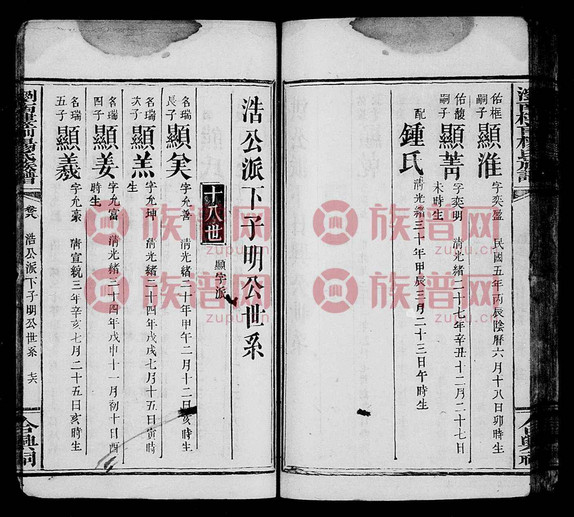 佑框嗣子 顯淮 字奕盈 民國五年丙辰陰曆六月十八日卯時生
佑馥嗣子 顯菁 字奕明 清光緒二十七年辛丑十二月二十七日未時生
配 鍾氏 清光緒三十年甲辰三月二十三日午時生
浩公派下子明公世系
十八世 顯字派
名瑞長子 顯羙 字允善 清光緒 年甲午二月十二日亥時生
名瑞次子 顯羔 字允坤 清光緒二十四年戊戌七月十五日寅時生
名瑞四子 顯姜 字允富 清光緒三十四年戊申十一月初十日酉時生
名瑞五子 顯義 字允豪 清宣統三年辛亥七月二十五日亥時生
卷八 浩公派下子明公世系
合興祠
族谱网
zupu.cn